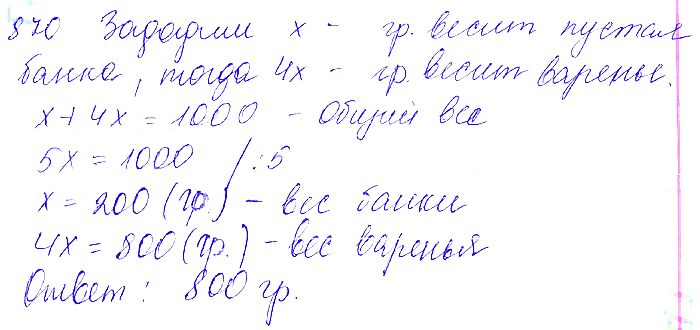 870 Зададим x - гр. весит пустая
банка, тогда 4x - гр. весит варенье.
x + 4x = 1000 - Общий вес
5x = 1000 /:5
x = 200 (гр.) - вес банки
4x = 800 (гр.) - вес варенья
Ответ: 800 гр.